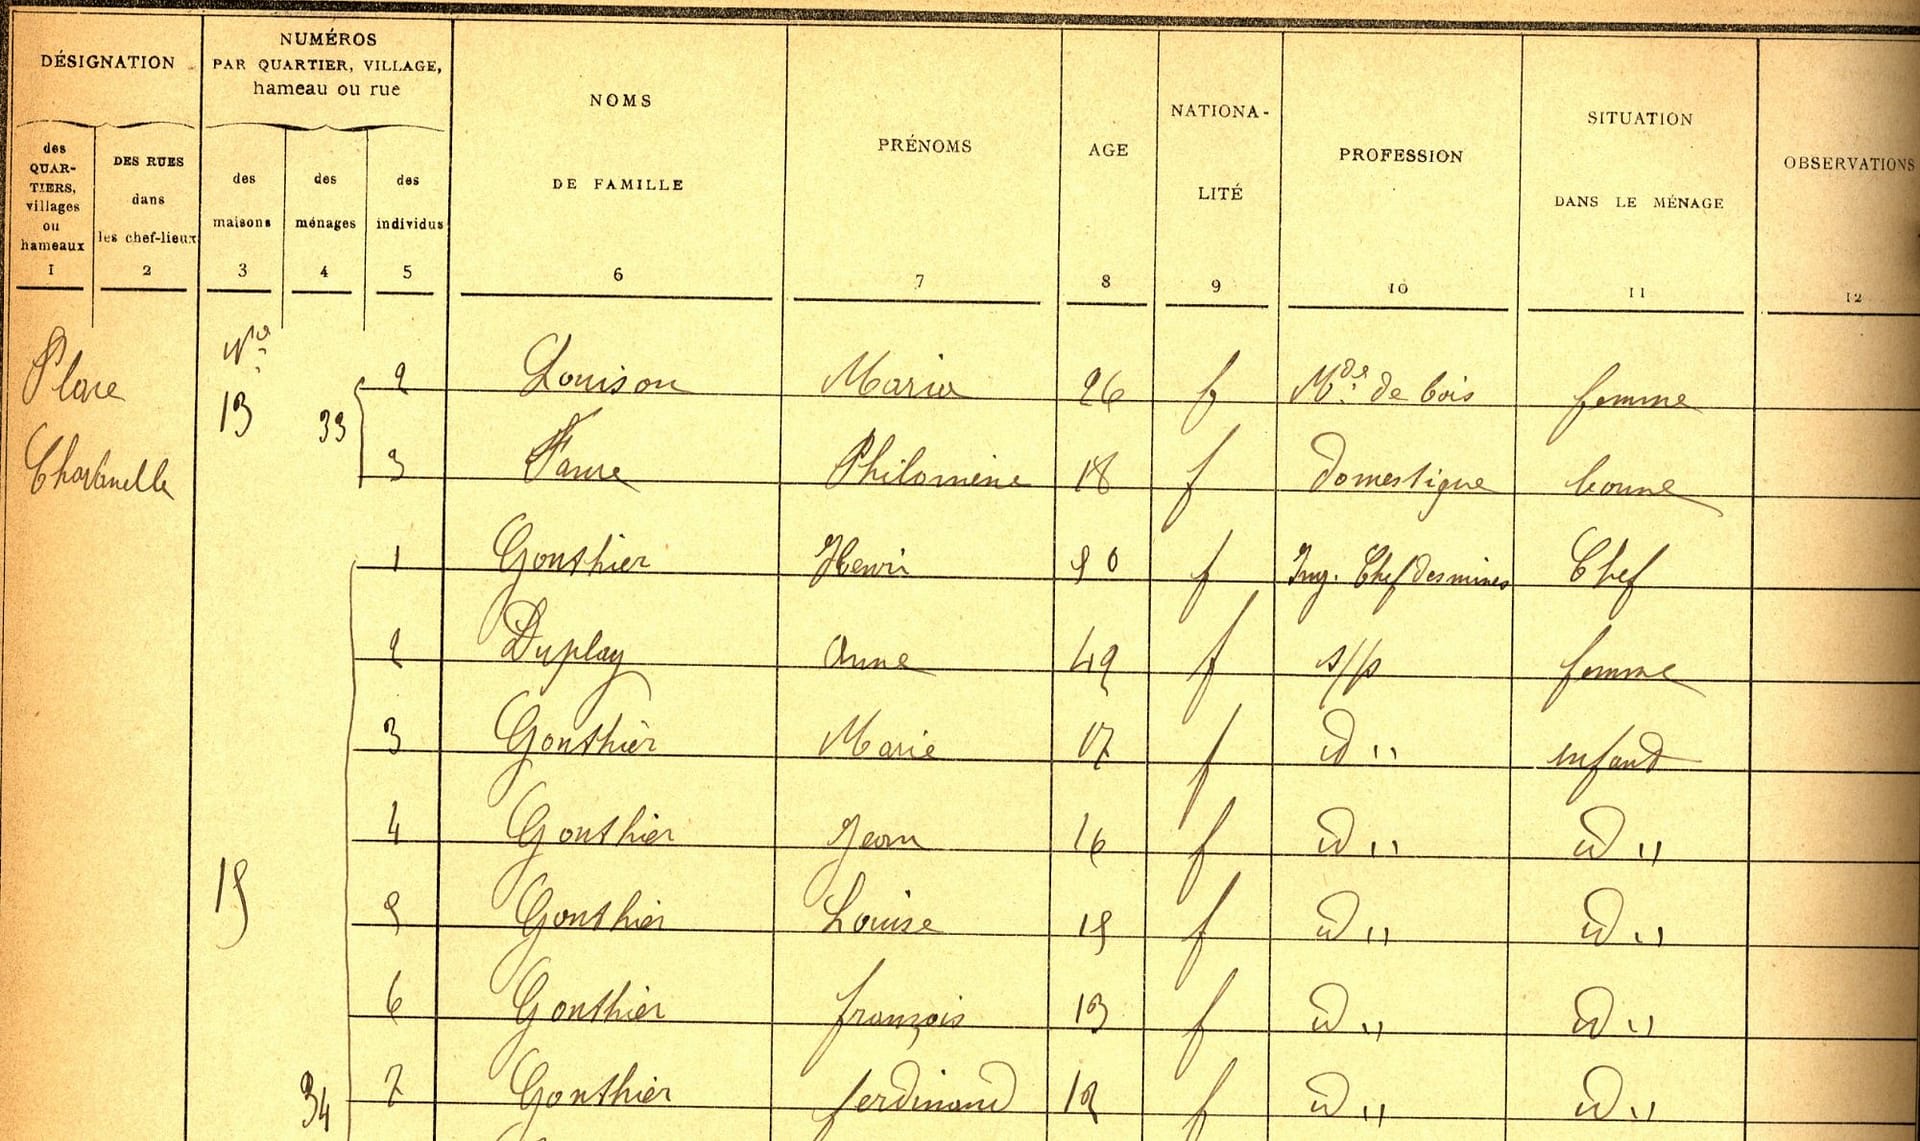 DÉSIGNATION
NUMÉROS
PAR QUARTIER, VILLAGE,
hameau ou rue
des
QUAR-
TIERS,
villages
ou
hameaux
1
DES RUES
dans
les chef-lieux
2
des
maisons
3
des
ménages
4
des
individus
5
NOMS
DE FAMILLE
6
PRÉNOMS
7
AGE
8
NATIONA-
LITÉ
9
PROFESSION
10
SITUATION
DANS LE MÉNAGE
11
OBSERVATIONS
12
Place Nos 2 Louison Maria 26 f Mde de bois femme
13 33
Chartmelle 3 Faure Philomène 18 f domestique bonne
1 Gonthier Henri 50 f Ing. Chef des mines Chef
2 Duplay Anne 42 f s//p femme
3 Gonthier Marie 17 f id " enfant
4 Gonthier Jean 16 f id " id "
15 5 Gonthier Louise 15 f id " id "
6 Gonthier françois 13 f id " id "
34 7 Gonthier ferdinand 12 f id " id "